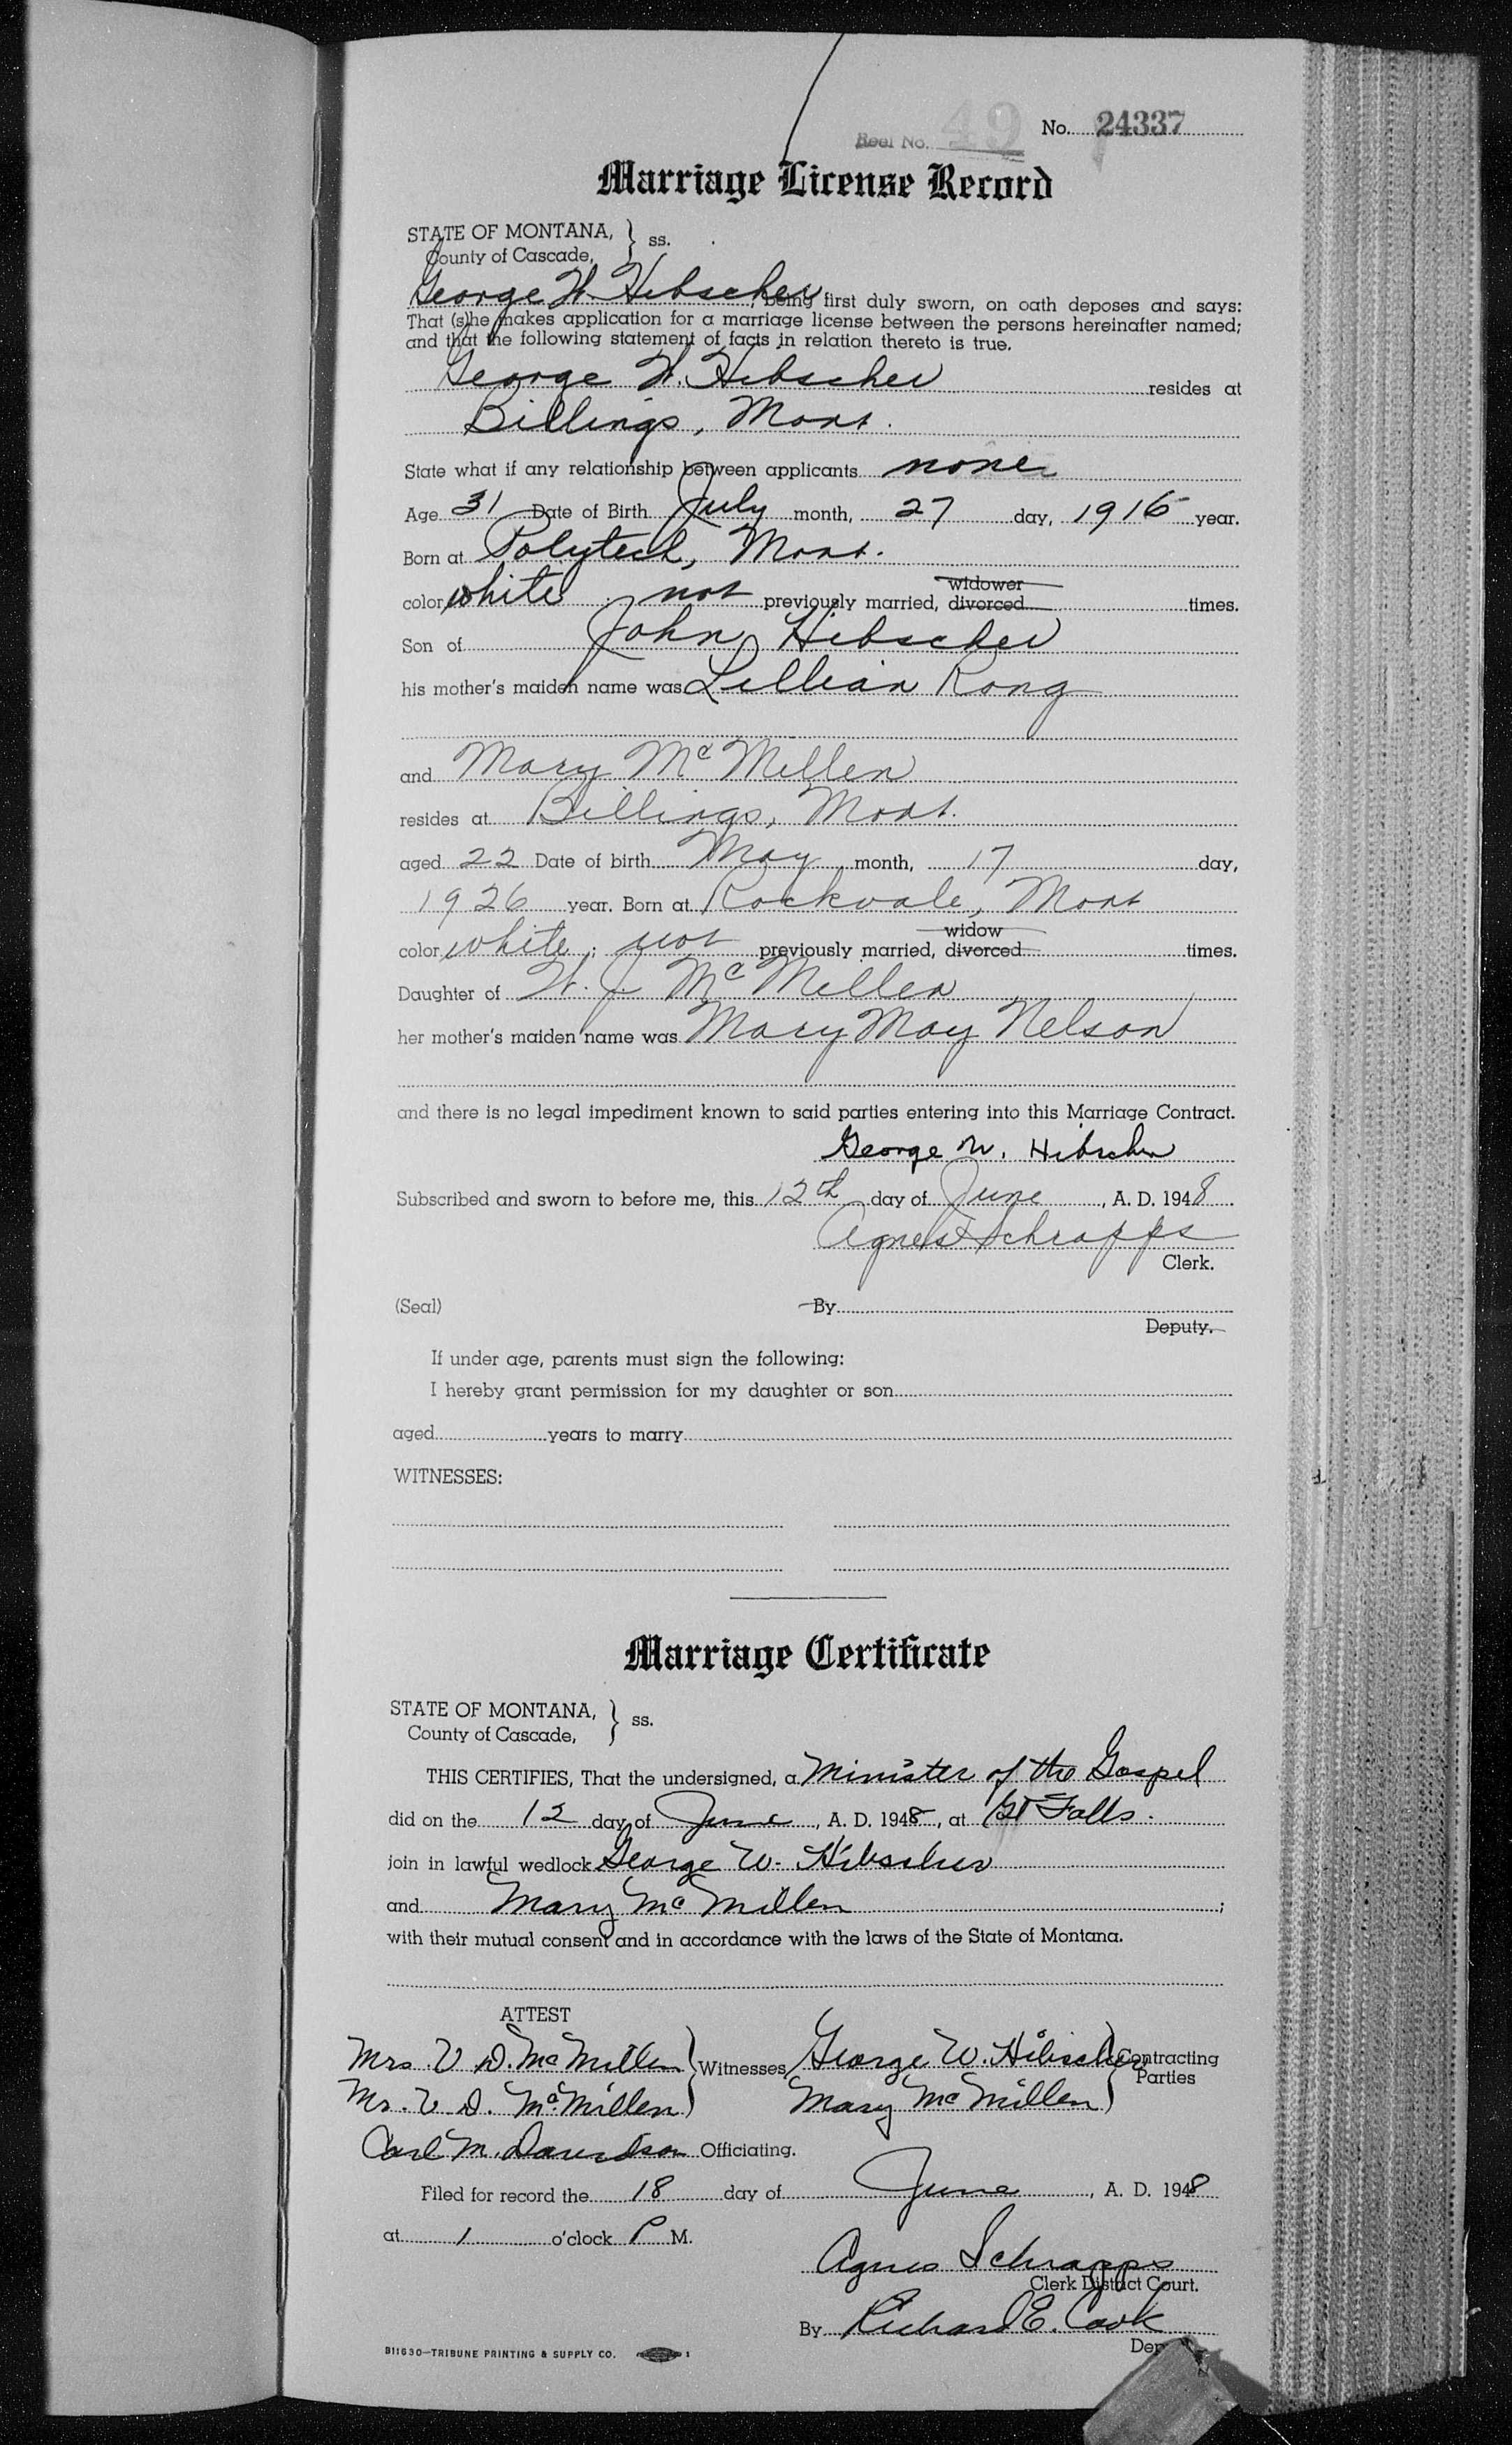 Reel No. 49 No. 24337
Marriage License Record
STATE OF MONTANA, } ss.
County of Cascade,
George W. Hibscher, being first duly sworn, on oath deposes and says:
That (s)he makes application for a marriage license between the persons hereinafter named;
and that the following statement of facts in relation thereto is true.
George W. Hibscher resides at
Billings, Mont.
State what if any relationship between applicants none
Age 31 Date of Birth July month, 27 day, 1916 year.
Born at Polytech, Mont.
widower
color white not previously married, divorced times.
Son of John Hibscher
his mother's maiden name was Lillian Rong
and Mary McMillen
resides at Billings, Mont.
aged 22 Date of birth May month, 17 day,
1926 year. Born at Rockvale, Mont
widow
color white; not previously married, divorced times.
Daughter of W. J. McMillen
her mother's maiden name was Mary May Nelson
and there is no legal impediment known to said parties entering into this Marriage Contract.
George W. Hibscher
Subscribed and sworn to before me, this 12th day of June, A. D. 1948.
Agnes Schrapps
Clerk.
(Seal) By
Deputy.
If under age, parents must sign the following:
I hereby grant permission for my daughter or son
aged years to marry
WITNESSES:
Marriage Certificate
STATE OF MONTANA, } ss.
County of Cascade,
THIS CERTIFIES, That the undersigned, a Minister of the Gospel
did on the 12 day of June, A. D. 1948, at Gt Falls.
join in lawful wedlock George W. Hibscher
and Mary McMillen;
with their mutual consent and in accordance with the laws of the State of Montana.
ATTEST
Mrs. V. D. McMillen } Witnesses George W. Hibscher } Contracting
Mr. V. D. McMillen Mary McMillen Parties
Carl M. Davidson Officiating.
Filed for record the 18 day of June, A. D. 1948
at 1 o'clock P M.
Agnes Schrapps
Clerk District Court.
By Richard E. Cook
Dep
B11630—TRIBUNE PRINTING & SUPPLY CO. 1